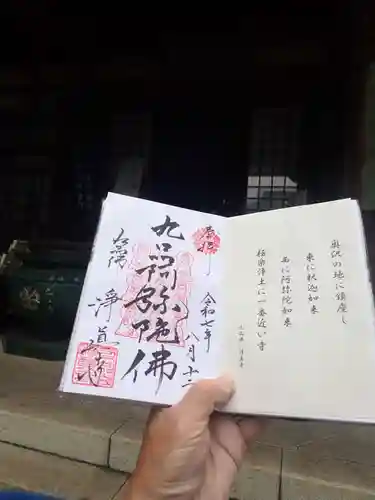 奉拝
令和七年
八月十二
九品阿弥陀佛
九品山
淨真寺
奥沢の地に鎮座し
東に釈迦如来
西に阿弥陀如来
極楽浄土に一番近い寺
九品山 浄真寺